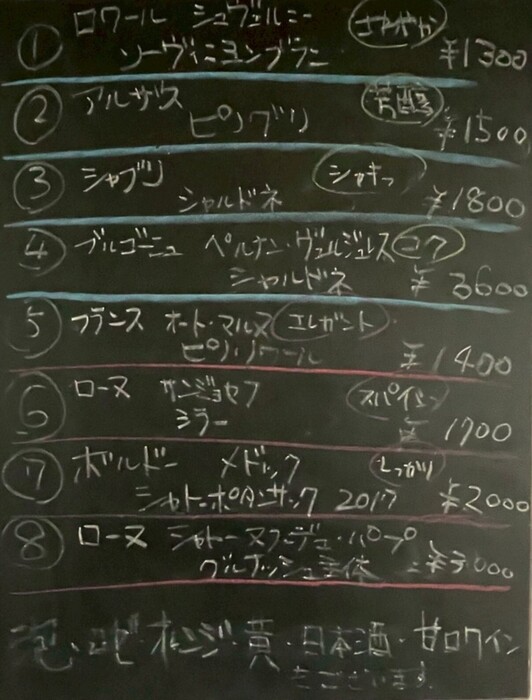 ① ロワール シュヴェルニー さわやか
ソーヴィニヨンブラン ¥1300
② アルザス 芳醇
ピノグリ ¥1500
③ シャブリ シャキっ
シャルドネ ¥1800
④ ブルゴーニュ ペルナン・ヴェルジュレス コク
シャルドネ ¥3600
⑤ フランス オート・マルヌ エレガント
ピノ・ノワール ¥1400
⑥ ローヌ サンジョセフ スパイシー
シラー ¥1700
⑦ ボルドー メドック しっかり
シャトーポタンサック 2017 ¥2000
⑧ ローヌ シャトーヌフ・デュ・パプ
グルナッシュ主体 ¥3000
泡・ロゼ・オレンジ・黄・日本酒・甘口ワイン
もございます